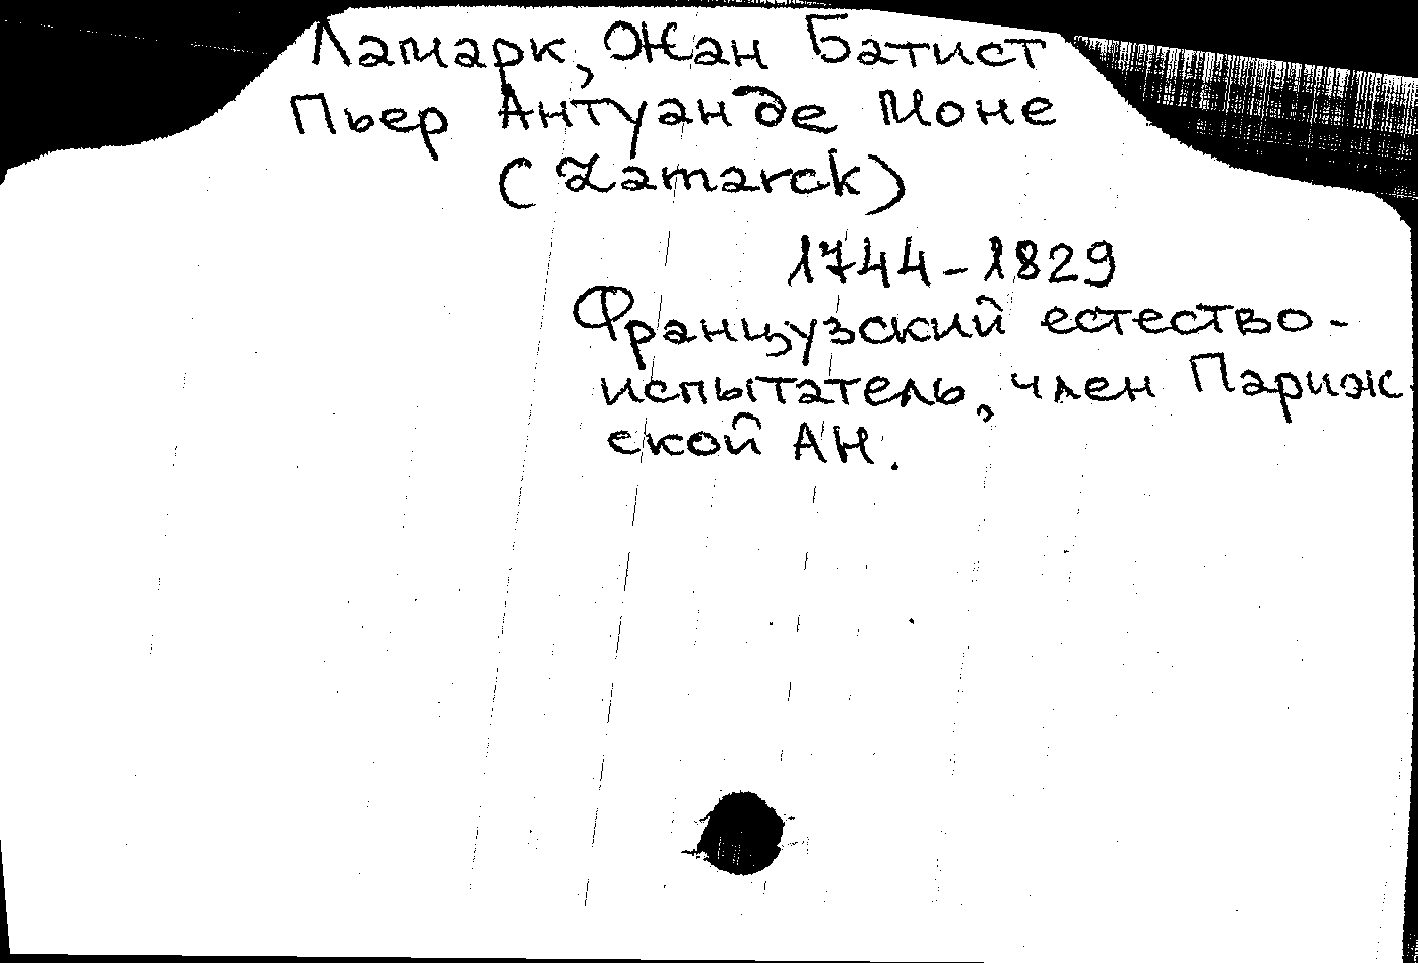 Ламарк, Жан Батист
Пьер Антуан де Моне
(Lamarck)
1744-1829
Французский естество-
испытатель, член Париж-
ской АН.